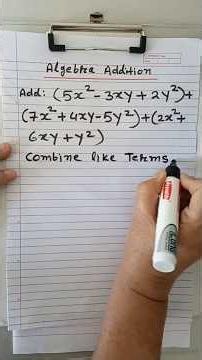 Algebra Addition
Add: (5x²-3xy+2y²)+
(7x²+4xy-5y²)+(2x²+
6xy+y²)
Combine like Terms